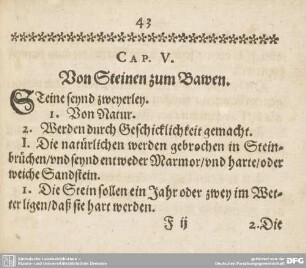 43
CAP. V.
Von Steinen zum Bawen.
STeine seynd zweyerley.
1. Von Natur.
2. Werden durch Geschicklichkeit gemacht.
I. Die natürlichen werden gebrochen in Stein-
brüchen/vnd seynd entweder Marmor/vnd harte/oder
weiche Sandstein.
1. Die Stein sollen ein Jahr oder zwey im Wet-
ter ligen/daß sie hart werden.
F ij 2. Die
Sächsische Landesbibliothek -
Staats- und Universitätsbibliothek Dresden
gefördert von der
Deutschen Forschungsgemeinschaft
DFG